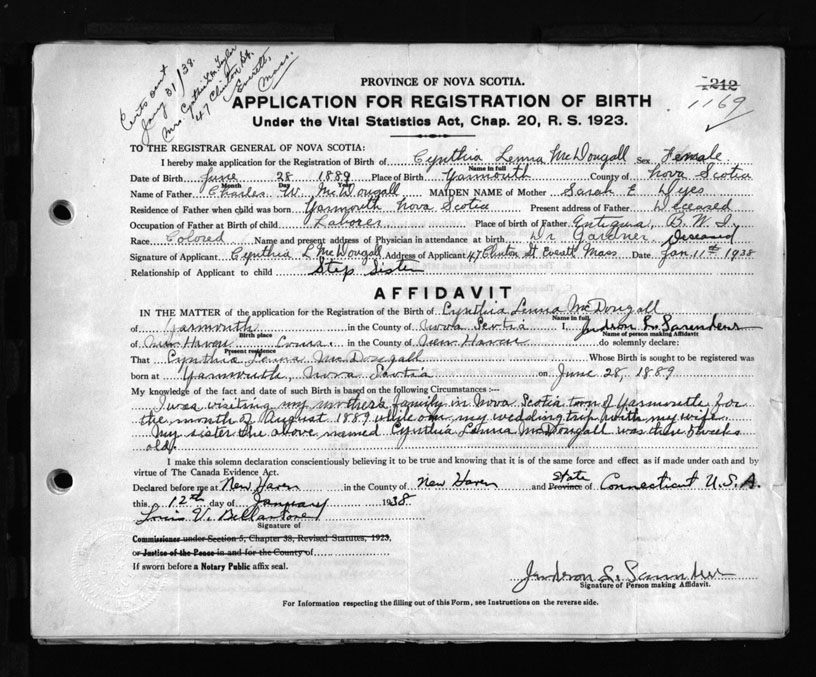 Certs out
Jany 31/38.
Mrs Cynthia L M Tyler
47 Clinton St.
Everett,
Mass.
PROVINCE OF NOVA SCOTIA.
1212
APPLICATION FOR REGISTRATION OF BIRTH
1169
Under the Vital Statistics Act, Chap. 20, R. S. 1923.
TO THE REGISTRAR GENERAL OF NOVA SCOTIA:
I hereby make application for the Registration of Birth of Cynthia Lenna McDougall Sex Female
Name in full
Date of Birth June 28 1889 Place of Birth Yarmouth County of Nova Scotia
Month Day Year
Name of Father Charles W. McDougall, MAIDEN NAME of Mother Sarah E Dyes
Residence of Father when child was born Yarmouth Nova Scotia Present address of Father Deceased
Occupation of Father at Birth of child Laborer Place of birth of Father Entigua, B. W. I.
Race Colored Name and present address of Physician in attendance at birth Dr Gardner, Deseased
Signature of Applicant Cynthia L McDougall Address of Applicant 47 Clinton St Everett Mass Date Jan. 11th 1938
Relationship of Applicant to child Step Sister
AFFIDAVIT
IN THE MATTER of the application for the Registration of the Birth of Cynthia Lenna McDougall
Name in full
of Yarmouth in the County of Nova Scotia I, Judson L. Saunders
Birth place Name of person making Affidavit
of New Haven Conn. in the County of New Haven do solemnly declare:
Present residence
That Cynthia Lenna McDougall Whose Birth is sought to be registered was
born at Yarmouth, Nova Scotia on June 28, 1889
My knowledge of the fact and date of such Birth is based on the following Circumstances :—
I was visiting my mother's family in Nova Scotia town of Yarmouth for
the month of August 1889 while on my wedding trip with my wife.
My sister the above named Cynthia Lenna McDougall was then 5 weeks
old.
I make this solemn declaration conscientiously believing it to be true and knowing that it is of the same force and effect as if made under oath and by
virtue of The Canada Evidence Act.
Declared before me at New Haven in the County of New Haven and Province of State Connecticut U.S.A.
this 12th day of January 1938
Louis V. Bellantone
Signature of
Commissioner under Section 5, Chapter 38, Revised Statutes, 1923,
or Justice of the Peace in and for the County of
If sworn before a Notary Public affix seal.
Judson L. Saunders
Signature of Person making Affidavit.
For Information respecting the filling out of this Form, see Instructions on the reverse side.